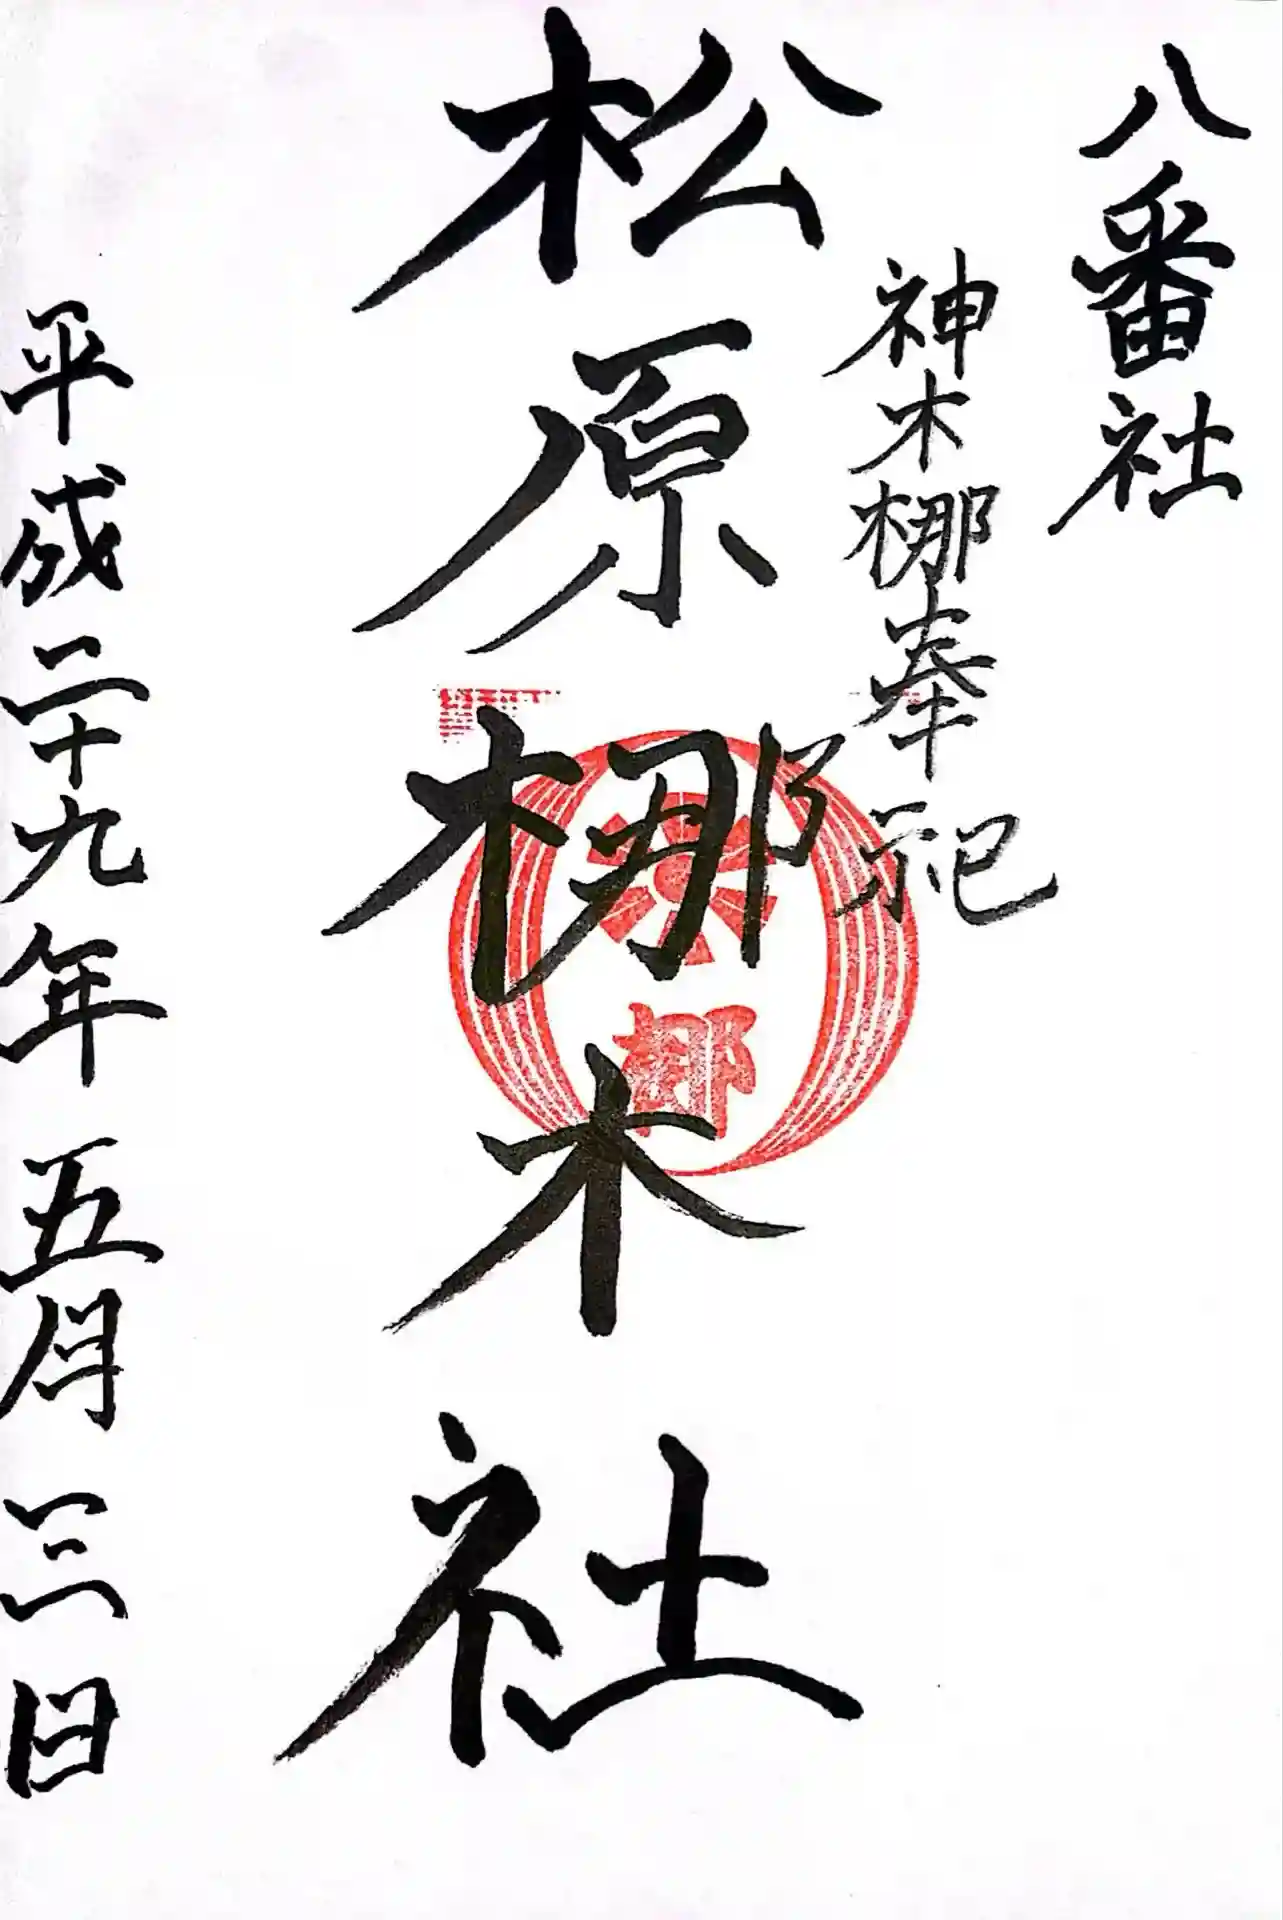 八番社
神木梛奉祀
松原梛木社
梛
平成二十九年五月三日